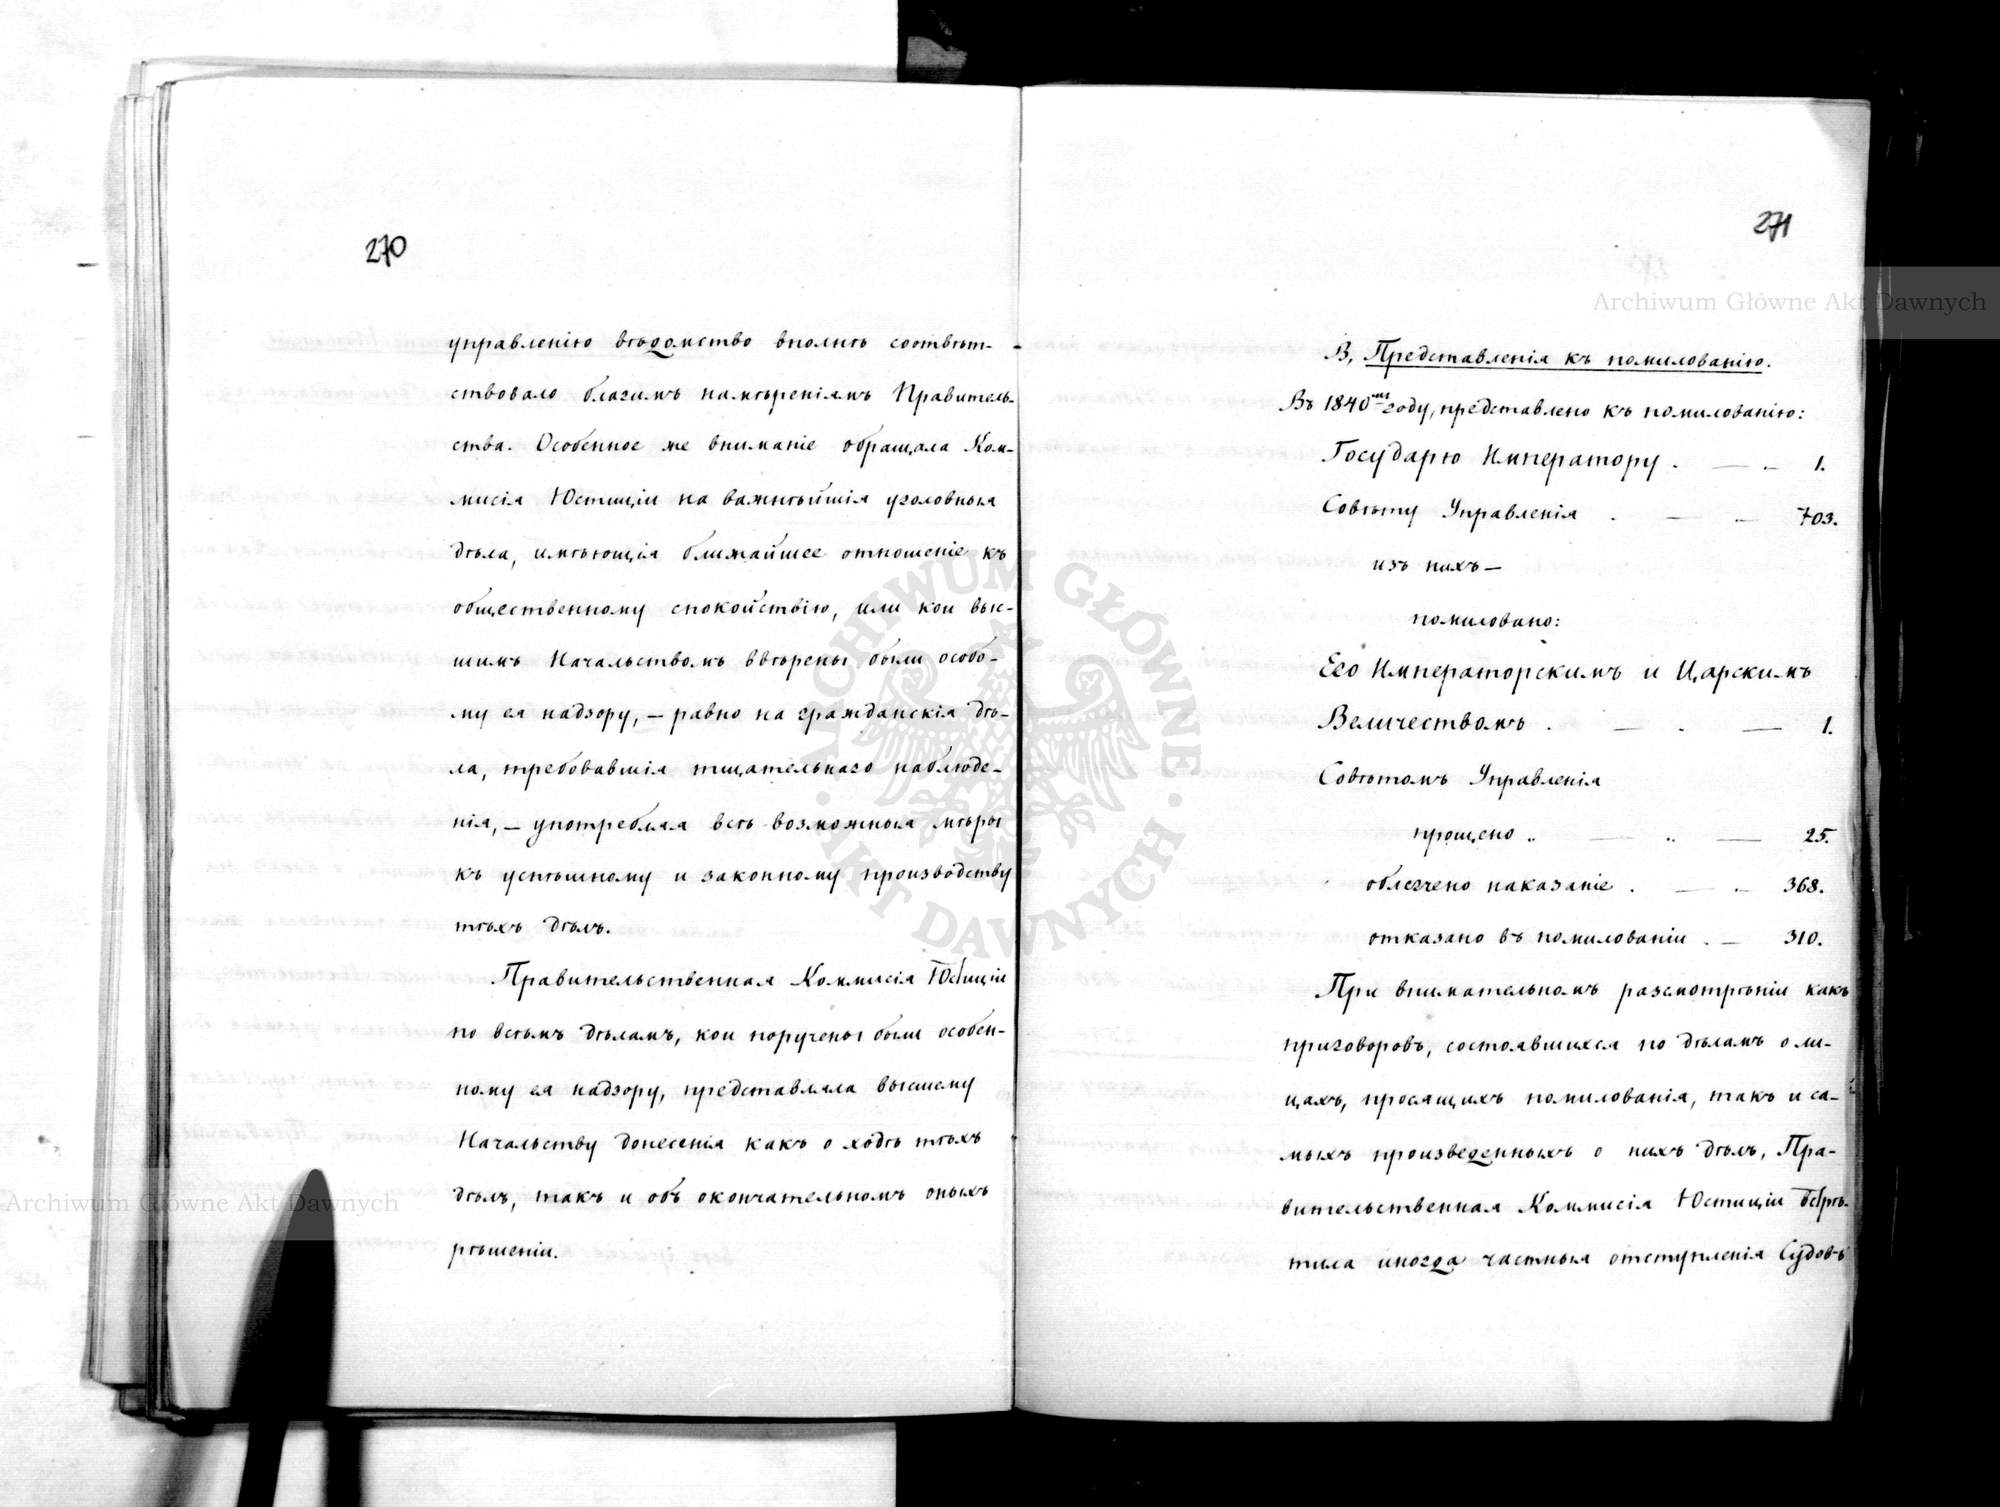 270
управленію вѣдомство вполнѣ соотвѣт-
ствовало благимъ намѣреніямъ Правитель-
ства. Особенное же вниманіе обращала Ком-
мисія Юстиціи на важнѣйшія уголовныя
дѣла, имѣющія ближайшее отношеніе къ
общественному спокойствію, или кои выс-
шимъ Начальствомъ ввѣрены были особо-
му ея надзору, — равно на гражданскія дѣ-
ла, требовавшія тщательнаго наблюде-
нія, — употребляя всѣ возможныя мѣры
къ успѣшному и законному производству
тѣхъ дѣлъ.
Правительственная Коммисія Юстиціи
по всѣмъ дѣламъ, кои поручены были особен-
ному ея надзору, представляла высшему
Начальству донесенія какъ о ходѣ тѣхъ
дѣлъ, такъ и объ окончательномъ оныхъ
рѣшеніи.
271
В, Представленія къ помилованію.
Въ 1840мъ году, представлено къ помилованію:
Государю Императору . — - 1.
Совѣту Управленія . — - 703.
изъ нихъ —
помиловано:
Его Императорскимъ и Царскимъ
Величествомъ . — . — 1.
Совѣтомъ Управленія
прощено .. — .. — 25.
облегчено наказаніе . — - 368.
отказано въ помилованіи . — 310.
При внимательномъ разсмотрѣніи какъ
приговоровъ, состоявшихся по дѣламъ о ли-
цахъ, просящихъ помилованія, такъ и са-
мыхъ произведенныхъ о нихъ дѣлъ, Пра-
вительственная Коммисія Юстиціи встрѣ-
тила иногда частныя отступленія Судовъ
Archiwum Główne Akt Dawnych
Archiwum Główne Akt Dawnych
ARCHIWUM GŁÓWNE
AKT DAWNYCH